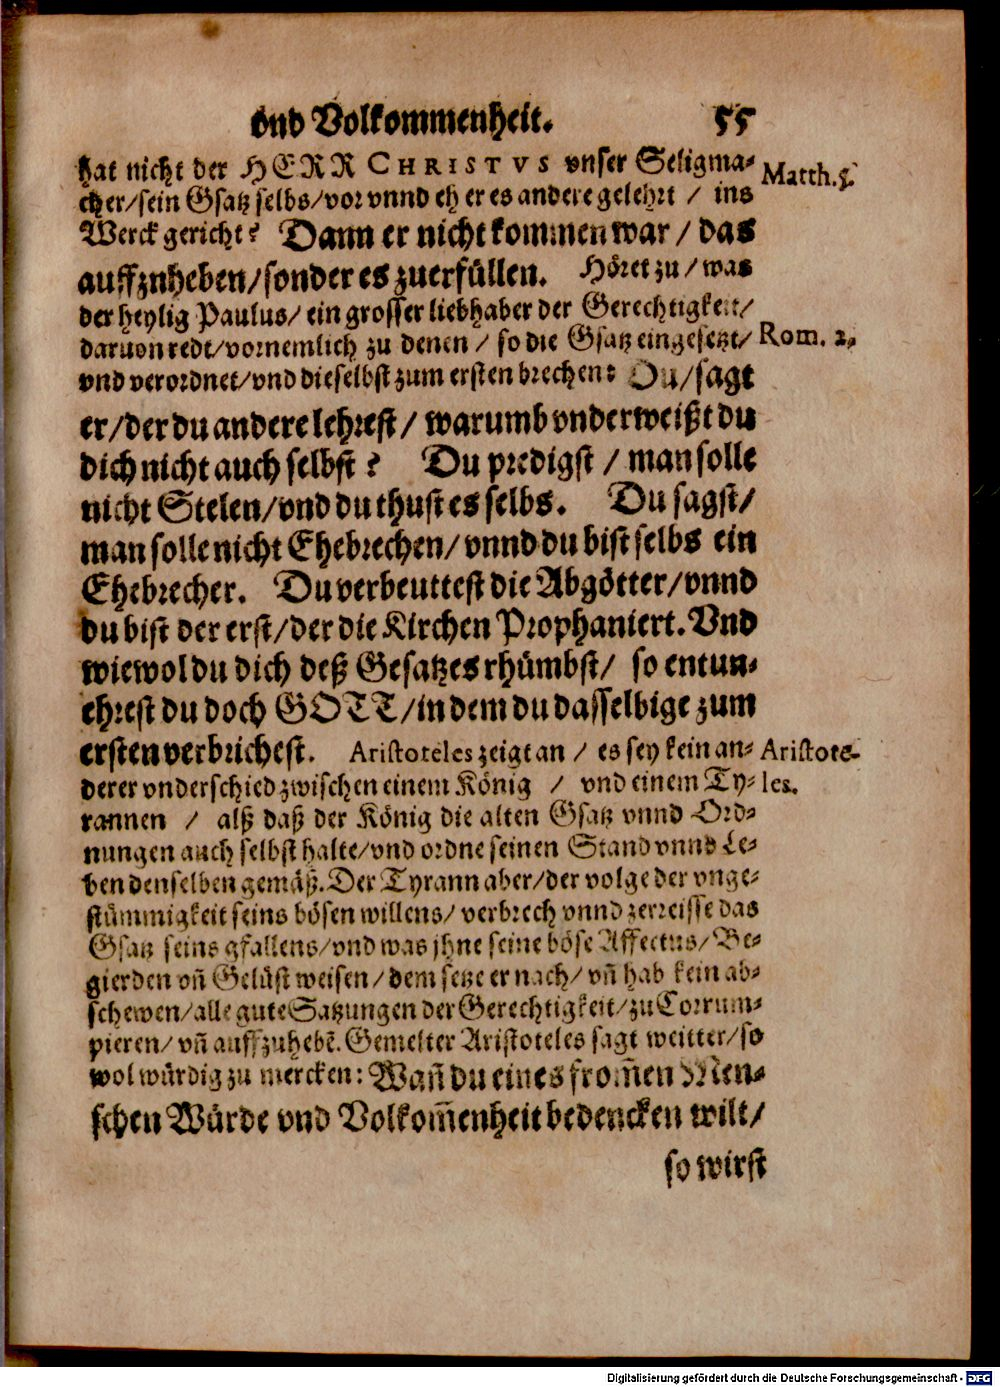 vnd Volkommenheit. 55
hat nicht der HERR CHRISTVS vnser Seligma-
Matth. 5.
cher/sein Gsatz selbs/vor vnnd eh er es andere gelehrt / ins
Werck gericht? Dann er nicht kommen war / das
auffznheben/sonder es zuerfüllen. Höret zu / was
der heylig Paulus/ ein grosser liebhaber der Gerechtigkeit/
daruon redt/vornemlich zu denen / so die Gsatz eingesetzt/
Rom. 2.
vnd verordnet/vnd dieselbst zum ersten brechen: Du/sagt
er/der du andere lehrest/ warumb vnderweißt du
dich nicht auch selbst? Du predigst / man solle
nicht Stelen/vnd du thust es selbs. Du sagst/
man solle nicht Ehebrechen/vnnd du bist selbs ein
Ehebrecher. Du verbeuttest die Abgötter/vnnd
du bist der erst/der die Kirchen Prophaniert. Vnd
wiewol du dich deß Gesatzes rhümbst/ so entun-
ehrest du doch GOTT/in dem du dasselbige zum
ersten verbrichest. Aristoteles zeigt an / es sey kein an-
Aristote-
derer vnderschied zwischen einem König / vnd einem Ty-
les.
rannen / alß daß der König die alten Gsatz vnnd Ord-
nungen auch selbst halte/vnd ordne seinen Stand vnnd Le-
ben denselben gemäß. Der Tyrann aber/der volge der vnge-
stümmigkeit seins bösen willens/ verbrech vnnd zerreisse das
Gsatz seins gfallens/vnd was jhne seine böse Affectus/Be-
gierden vñ Gelüst weisen/dem setze er nach/vñ hab kein ab-
schewen/alle gute Satzungen der Gerechtigkeit/zu Corrum-
pieren/vñ auffzuhebẽ. Gemelter Aristoteles sagt weitter/so
wol würdig zu mercken: Wañ du eines from̃en Men-
schen Würde vnd Volkom̃enheit bedencken wilt/
so wirst
Digitalisierung gefördert durch die Deutsche Forschungsgemeinschaft - DFG